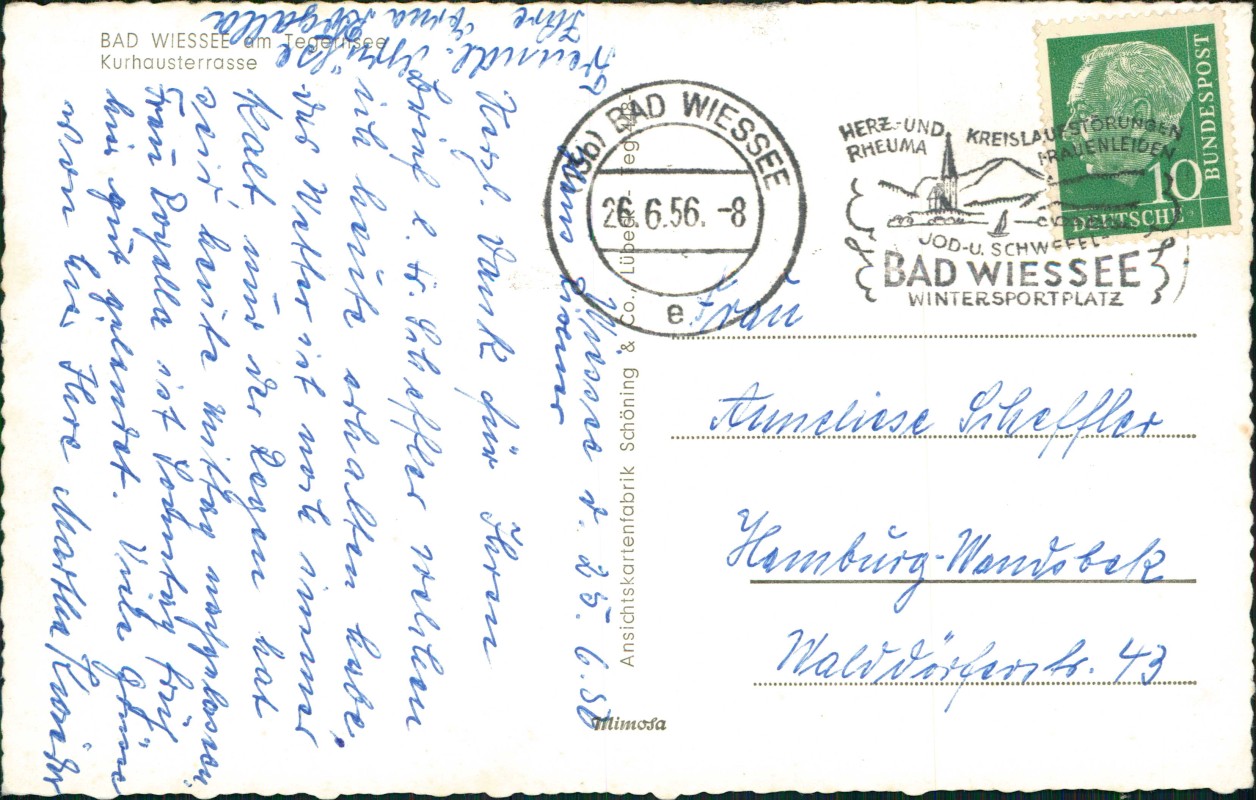 BAD WIESSEE am Tegernsee
Kurhausterrasse
(13b) BAD WIESSEE
26.6.56.-8
e
HERZ- UND KREISLAUFSTÖRUNGEN
RHEUMA FRAUENLEIDEN
JOD- U. SCHWEFEL-
BAD WIESSEE
WINTERSPORTPLATZ
10
DEUTSCHE
BUNDESPOST
Ansichtskartenfabrik Schöning & Co., Lübeck
Mimosa
Frau
Anneliese Scheffler
Hamburg-Wandsbek
Walddörferstr. 43
Wiessee d. 25.6.56
Herzl. Dank für Ihren
Brief l. Fr. Scheffler welchen
ich heute erhalten habe,
das Wetter ist noch immer
kalt nur der Regen hat
seit heute mittag nachgelassen.
Frau Rogalla ist Sonntag früh
hier gut gelandet. Viele Grüsse
von hier Ihre Martha
Freundl. Grüsse
Ihre Erna Rogalla